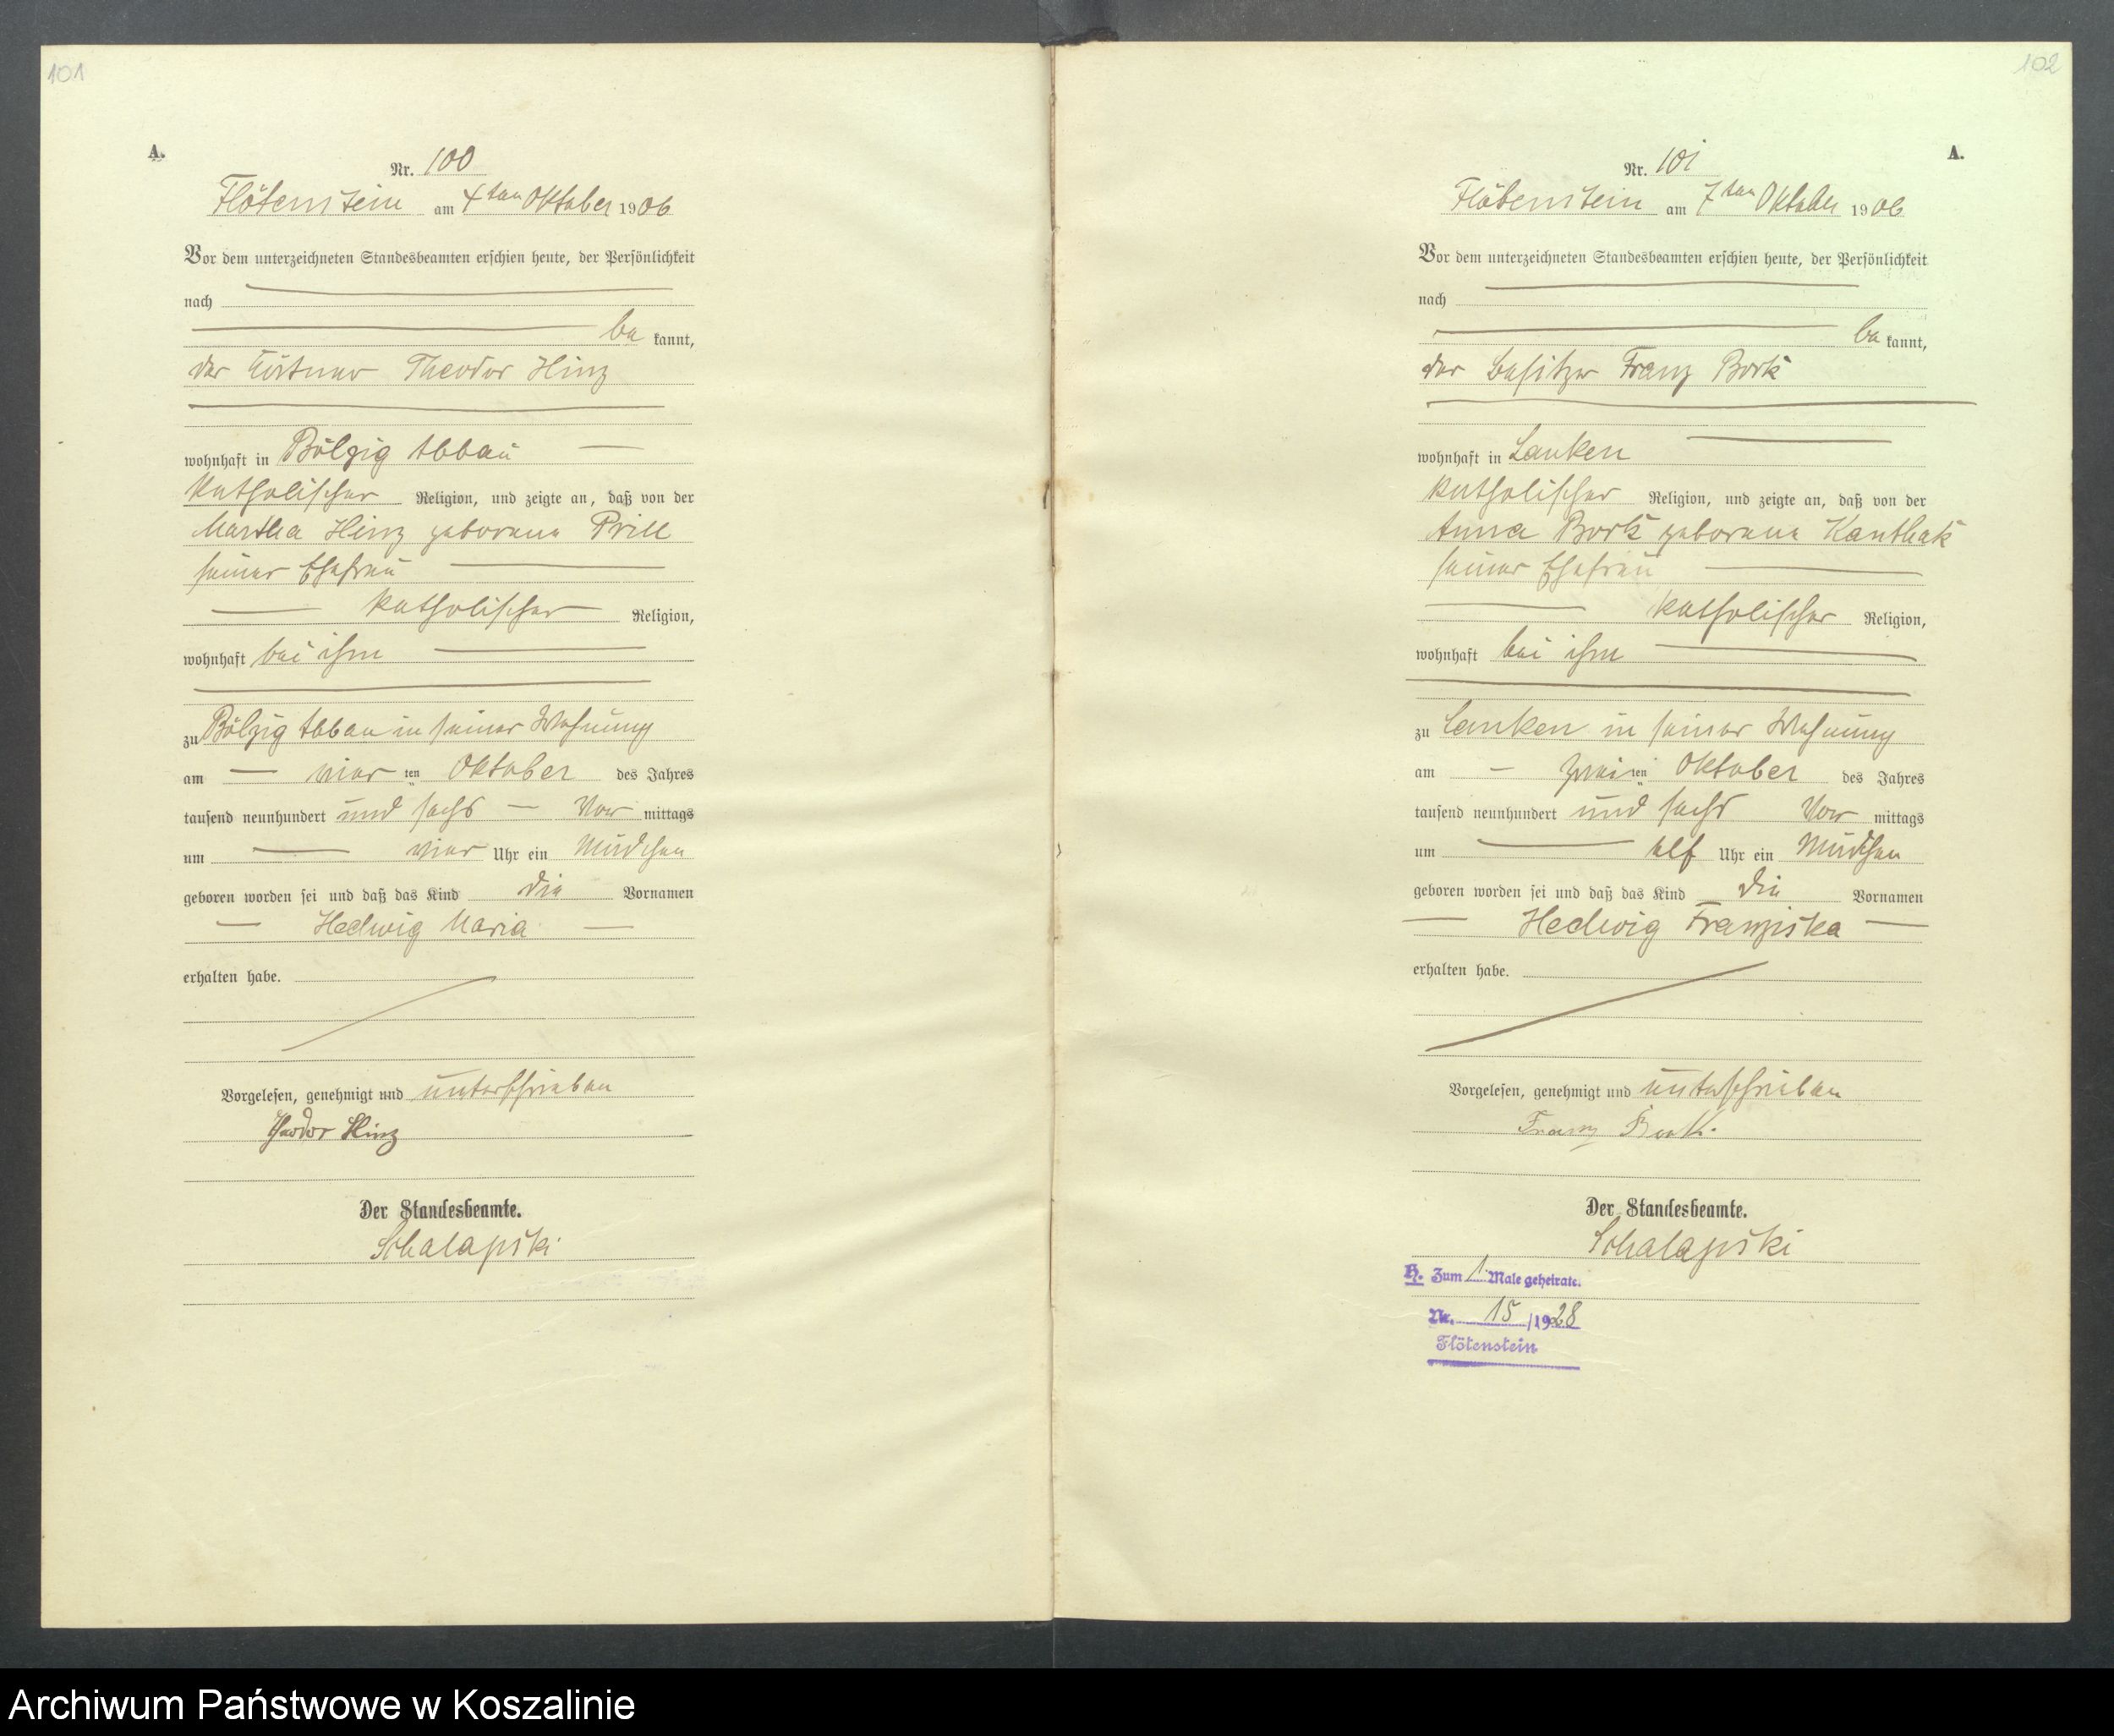 101
A.
Nr. 100
Flötenstein am 4ten Oktober 1906
Vor dem unterzeichneten Standesbeamten erschien heute, der Persönlichkeit
nach
be kannt,
der Theodor Hinz
wohnhaft in Bölzig Abbau
katholischer Religion, und zeigte an, daß von der
Martha Hinz geborene Prill
seiner Ehefrau
katholischer Religion,
wohnhaft bei ihm
zu Bölzig Abbau in seiner Wohnung
am vier ten Oktober des Jahres
tausend neunhundert und sechs Vor mittags
um vier Uhr ein Mädchen
geboren worden sei und daß das Kind die Vornamen
Hedwig Maria
erhalten habe.
Vorgelesen, genehmigt und unterschrieben
Theodor Hinz
Der Standesbeamte.
Schalapski
102
A.
Nr. 101
Flötenstein am 7ten Oktober 1906
Vor dem unterzeichneten Standesbeamten erschien heute, der Persönlichkeit
nach
be kannt,
der Besitzer Franz Bork
wohnhaft in Lanken
katholischer Religion, und zeigte an, daß von der
Anna Bork geborene Kanthak
seiner Ehefrau
katholischer Religion,
wohnhaft bei ihm
zu Lanken in seiner Wohnung
am zwei ten Oktober des Jahres
tausend neunhundert und sechs Vor mittags
um elf Uhr ein Mädchen
geboren worden sei und daß das Kind die Vornamen
Hedwig Franziska
erhalten habe.
Vorgelesen, genehmigt und unterschrieben
Franz Bork.
Der Standesbeamte.
Schalapski
H. Zum 1 Male geheirate.
Nr. 15 /1928
Flötenstein
Archiwum Państwowe w Koszalinie